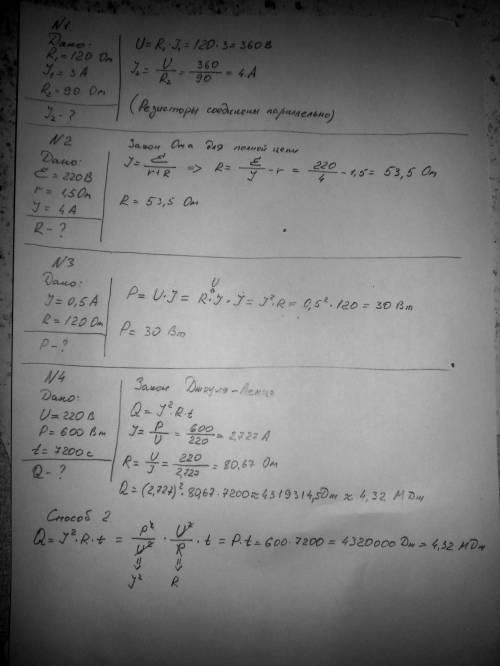 N1
Дано:
R₁=120 Ом
J₁=3A
R₂=90 Ом
J₂-?
U=R₁·J₁=120·3=360В
J₂=U/R₂=360/90=4A
(Резисторы соединены параллельно)
N2
Дано:
Ɛ=220В
r=1,5Ом
J=4A
R-?
Закон Ома для полной цепи
J=Ɛ/(r+R) => R=Ɛ/J-r=220/4-1,5=53,5 Ом
R=53,5 Ом
N3
Дано:
J=0,5A
R=120 Ом
P-?
U
P=U·J=R·J·J=J²·R=0,5²·120=30 Вт
P=30 Вт
N4
Дано:
U=220В
P=600 Вт
t=7200 с
Q-?
Закон Джоуля-Ленца
Q=J²·R·t
J=P/U=600/220=2,727A
R=U/J=220/2,727=80,67 Ом
Q=(2,727)²·80,67·7200≈4319314,5Дж≈4,32 МДж
Способ 2
Q=J²·R·t=P²/U²·U²/P·t=P·t=600·7200=4320000 Дж=4,32 МДж
J² R